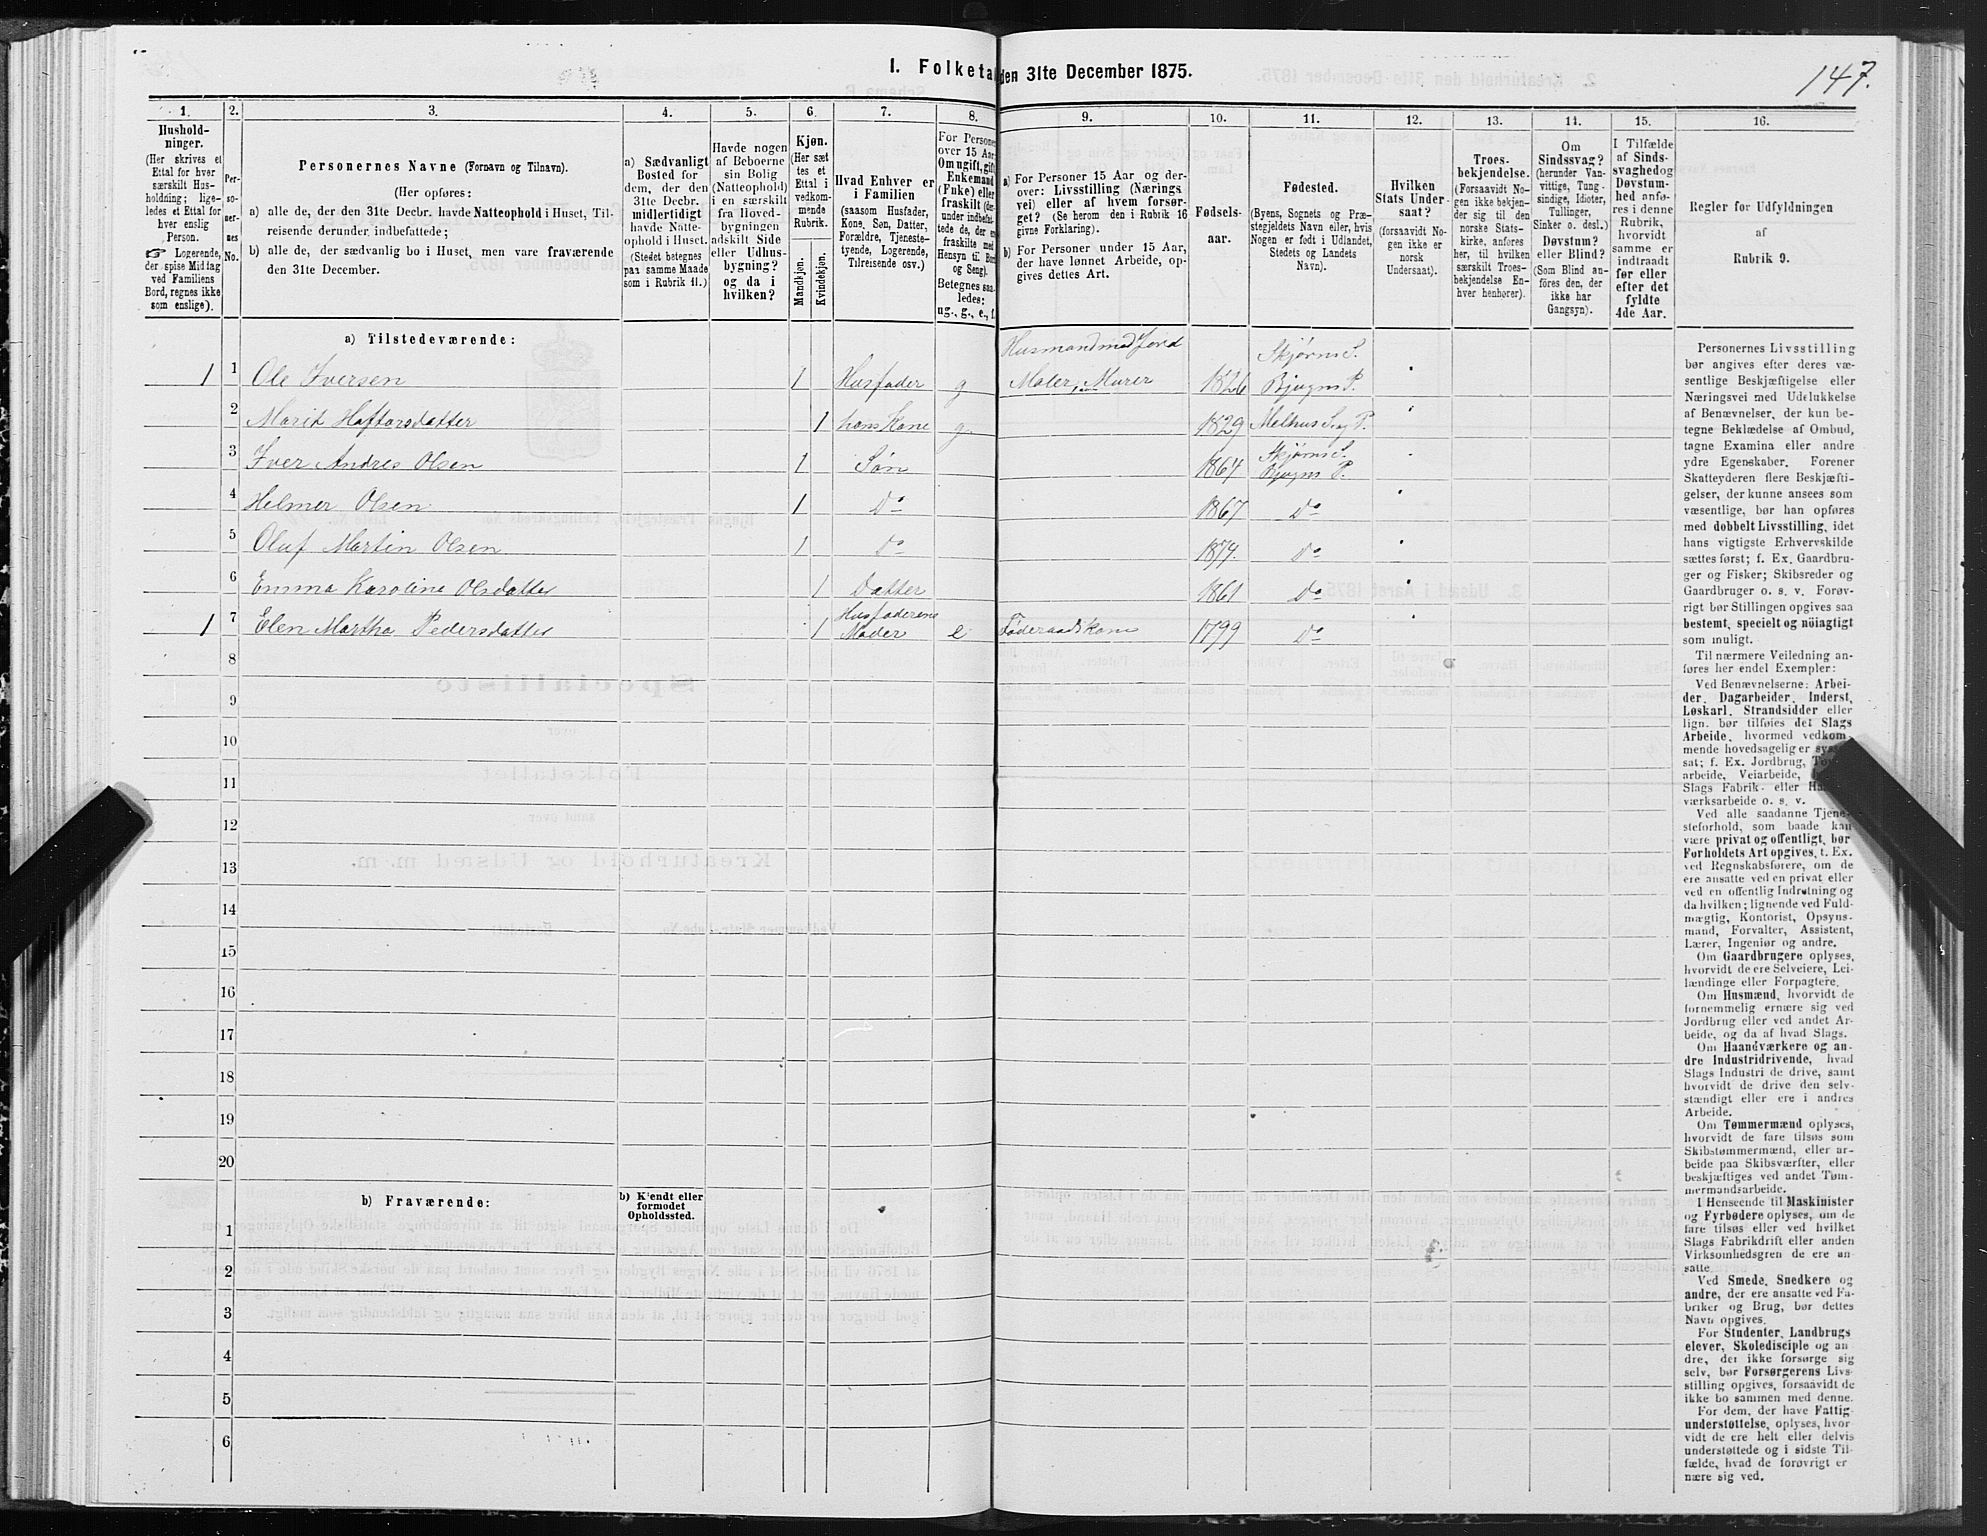 147.
I. Folketal den 31te December 1875.
1.
2.
3.
4.
5.
6.
7.
8.
9.
10.
11.
12.
13.
14.
15.
16.
Hushold-
ninger.
(Her skrives et
Ettal for hver
særskilt Hus-
holdning; lige-
ledes et Ettal for
hver enslig
Person.
☞ Logerende,
der spise Middag
ved Familiens
Bord, regnes ikke
som enslige).
Per-
so-
ner-
nes
No.
Personernes Navne (Fornavn og Tilnavn).
(Her opføres:
a) alle de, der den 31te Decbr. havde Natteophold i Huset, Til-
reisende derunder indbefattede;
b) alle de, der sædvanlig bo i Huset, men vare fraværende
den 31te December.
a) Sædvanligt
Bosted for
dem, der den
31te Decbr.
midlertidigt
havde Natte-
ophold i Huset.
(Stedet betegnes
paa samme Maade
som i Rubrik 11.)
Havde nogen
af Beboerne
sin Bolig
(Natteophold)
i en særskilt
fra Hoved-
bygningen
adskilt Side
eller Udhus-
bygning?
og da i
hvilken?
Kjøn.
(Her sæt
tes et
Ettal i
vedkom-
mende
Rubrik.
Mandkjøn.
Kvindekjøn.
Hvad Enhver er
i Familien
(saasom Husfader,
Kone, Søn, Datter,
Forældre, Tjeneste-
tyende, Logerende,
Tilreisende osv.)
For Persone
over 15 Aar
Om ugift, gift
Enkemand
(Enke) eller
fraskilt (der-
under indbefat-
tede de, der er
fraskilte med
Hensyn til Bor
og Seng).
Betegnes saa-
ledes:
ug., g., e., f.
a) For Personer 15 Aar og der-
over: Livsstilling (Nærings-
vei) eller af hvem forsør-
get? (Se herom den i Rubrik 16
givne Forklaring).
b) For Personer under 15 Aar,
der have lønnet Arbeide, op-
gives dettes Art.
Fødsels-
aar.
Fødested.
(Byens, Sognets og Præ-
stegjeldets Navn eller, hvis
Nogen er født i Udlandet,
Stedets og Landets
Navn).
Hvilken
Stats Under-
saat?
(forsaavidt No-
gen ikke er
norsk
Undersaat).
Troes-
bekjendelse.
(Forsaavidt No-
gen ikke bekjen-
der sig til den
norske Stats-
kirke, anføres
her, til hvilken
særskilt Troes-
bekjendelse En-
hver henhører).
Om
Sindssvag?
(herunder Van-
vittige, Tung-
sindige, Idioter,
Tullinger,
Sinker o. desl.)
Døvstum?
eller Blind?
(Som Blind an-
føres den, der
ikke har
Gangsyn).
I Tilfælde
af Sinds-
svaghed og
Døvstum-
hed anfø-
res i denne
Rubrik,
hvorvidt
samme er
indtraadt
før eller
efter det
fyldte
4de Aar.
Regler for Udfyldningen
af
Rubrik 9.
a) Tilstedeværende:
1 1 Ole Iversen 1 Husfader g Husmand med Jord Maler, Murer 1826 Skjørns S. Bjugns P.
2 Marit Haftorsdatter 1 hans Kone g. 1829 Melhus S og P.
3 Iver Andres Olsen 1 Søn 1864 Skjørns S. Bjugns P.
4 Helmer Olsen 1 Do 1867 Do
5 Oluf Martin Olsen 1 Do 1874. Do
6 Emma Karoline Olsdatter 1 Datter 1861 Do
1 7 Elen Martha Pedersdatter 1 Husfaderens Moder e Føderaadskone 1799 Do
8
9
10
11
12
13
14
15
16
17
18
19
20
b) Fraværende:
b) Kjendt eller
formodet
Opholdssted.
1
2
3
4
5
6
Personernes Livsstilling
bør angives efter deres væ-
sentlige Beskjæftigelse eller
Næringsvei med Udelukkelse
af Benævnelser, der kun be-
tegne Beklædelse af Ombud,
tagne Examina eller andre
ydre Egenskaber. Forener
Skatteyderen flere Beskjæfti-
gelser, der kunne ansees som
væsentlige, bør han opføres
med dobbelt Livsstilling, idet
hans vigtigste Erhvervskilde
sættes først; f. Ex. Gaardbru-
ger og Fisker; Skibsreder og
Gaardbruger o. s. v. Forøv-
rigt bør Stillingen opgives saa
bestemt, specielt og nöiagtigt
som muligt.
Til nærmere Veiledning an-
føres her endel Exempler:
Ved Benævnelserne: Arbei-
der, Dagarbeider, Inderst,
Løskarl, Strandsidder eller
lign. bør tilføies det Slags
Arbeide, hvormed vedkom-
mende hovedsagelig er syssel-
sat; f. Ex. Jordbrug,
arbeide, Veiarbeide,
Slags Fabrik- eller
værksarbeide o. s. v.
Ved alle saadanne Tjene-
steforhold, som baade kan
være privat og offentligt, bør
Forholdets Art opgives, t. Ex.
ved Regnskabsførere, om de
ere ansatte ved en privat eller
ved en offentlig Indretning og
da hvilken; lignende ved Fuld-
mægtig, Kontorist, Opsyns-
mand, Forvalter, Assistent,
Lærer, Ingeniør og andre.
Om Gaardbrugere oplyses,
hvorvidt de ere Selveiere, Lei-
lændinge eller Forpagtere.
Om Husmænd, hvorvidt de
fornemmelig ernære sig ved
Jordbrug eller ved andet Ar-
beide, og da af hvad Slags.
Om Haandværkere og an-
dre Industridrivende, hvad
Slags Industri de drive, samt
hvorvidt de drive den selv-
stændigt eller ere i andres
Arbeide.
Om Tømmermænd oplyses,
hvorvidt de fare tilsøs som
Skibstømmermænd, eller ar-
beide paa Skibsværfter, eller
beskjæftiges ved andet Tøm-
mermandsarbeide.
I Henseende til Maskinister
og Fyrbødere oplyses, om de
fare tilsøs eller ved hvilket
Slags Fabrikdrift eller anden
Virksomhedsgren de ere an-
satte.
Ved Smede, Snedkere og
andre, der ere ansatte ved Fa-
briker og Brug, bør dettes
Navn opgives.
For Studenter, Landbrugs
elever, Skoledisciple og an
dre, der ikke forsørge sig
selv, bør Forsørgerens Livs-
stilling opgives, forsaavidt de
ikke bo sammen med denne.
For dem, der have Fattig-
understøttelse, oplyses, hvor-
vidt de ere helt eller delvis
understøttede og i sidste Til-
fælde, hvad de forøvrigt er
nære sig ved.